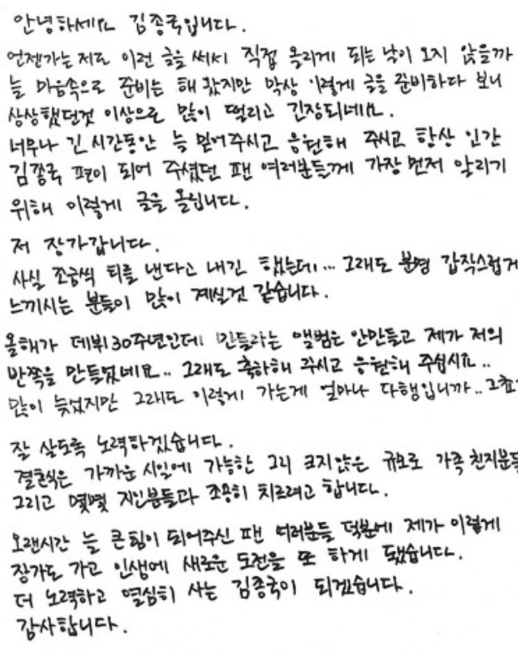 안녕하세요 김종국입니다.
언젠가는 저도 이런 글을 써서 직접 올리게 되는 날이 오지 않을까
늘 마음속으로 준비는 해 왔지만 막상 이렇게 글을 준비하다 보니
상상했던것 이상으로 많이 떨리고 긴장되네요.
너무나 긴 시간동안 늘 믿어주시고 응원해 주시고 항상 인간
김종국 편이 되어 주셨던 팬 여러분들께 가장 먼저 알리기
위해 이렇게 글을 올립니다.
저 장가갑니다.
사실 조금씩 티를 낸다고 내긴 했는데... 그래도 분명 갑작스럽게
느끼시는 분들이 많이 계실것 같습니다.
올해가 데뷔30주년인데 만들라는 앨범은 안만들고 제가 저의
반쪽을 만들었네요.. 그래도 축하해 주시고 응원해 주십시요..
많이 늦었지만 그래도 이렇게 가는게 얼마나 다행입니까.. 그쵸
잘 살도록 노력하겠습니다.
결혼식은 가까운 시일에 가능한 그리 크지않은 규모로 가족 친지분들
그리고 몇몇 지인분들과 조용히 치르려고 합니다.
오랜시간 늘 큰힘이 되어주신 팬 여러분들 덕분에 제가 이렇게
장가도 가고 인생에 새로운 도전을 또 하게 됐습니다.
더 노력하고 열심히 사는 김종국이 되겠습니다.
감사합니다.